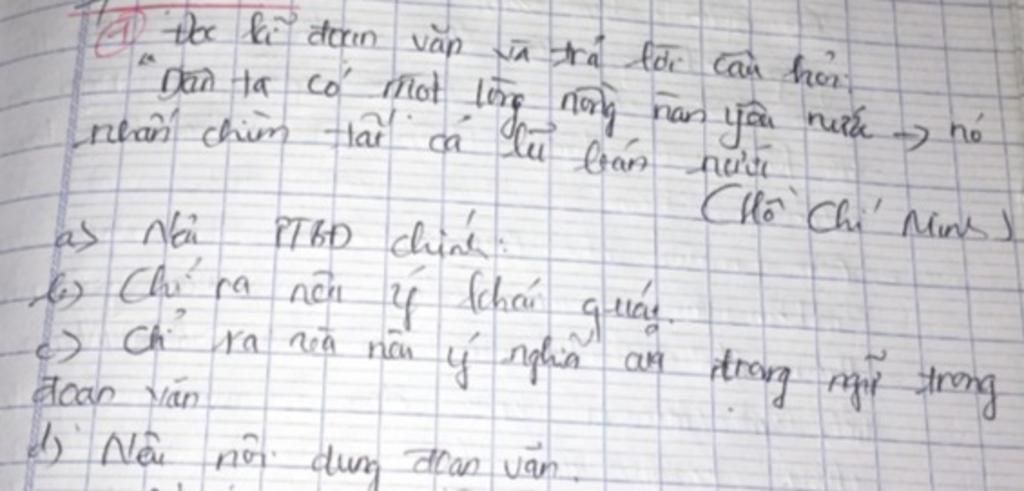 ① Đọc kĩ đoạn văn và trả lời câu hỏi:
"Dân ta có một lòng nồng nàn yêu nước → nó
nhấn chìm tất cả lũ bán nước
(Hồ Chí Minh)
a) Nêu PTBĐ chính:
b) Chỉ ra nêu ý khái quát.
c) Chỉ ra và nêu ý nghĩa trạng ngữ trong
đoạn văn
d) Nêu nội dung đoạn văn.